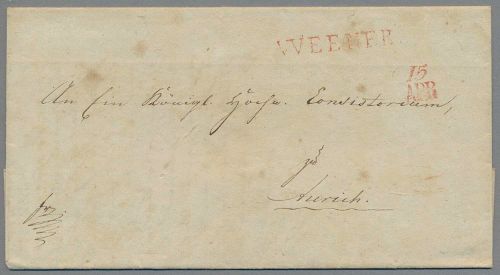 WEENER
15
APR
An Ein Königl. Hochw. Consistorium,
zu
Aurich.